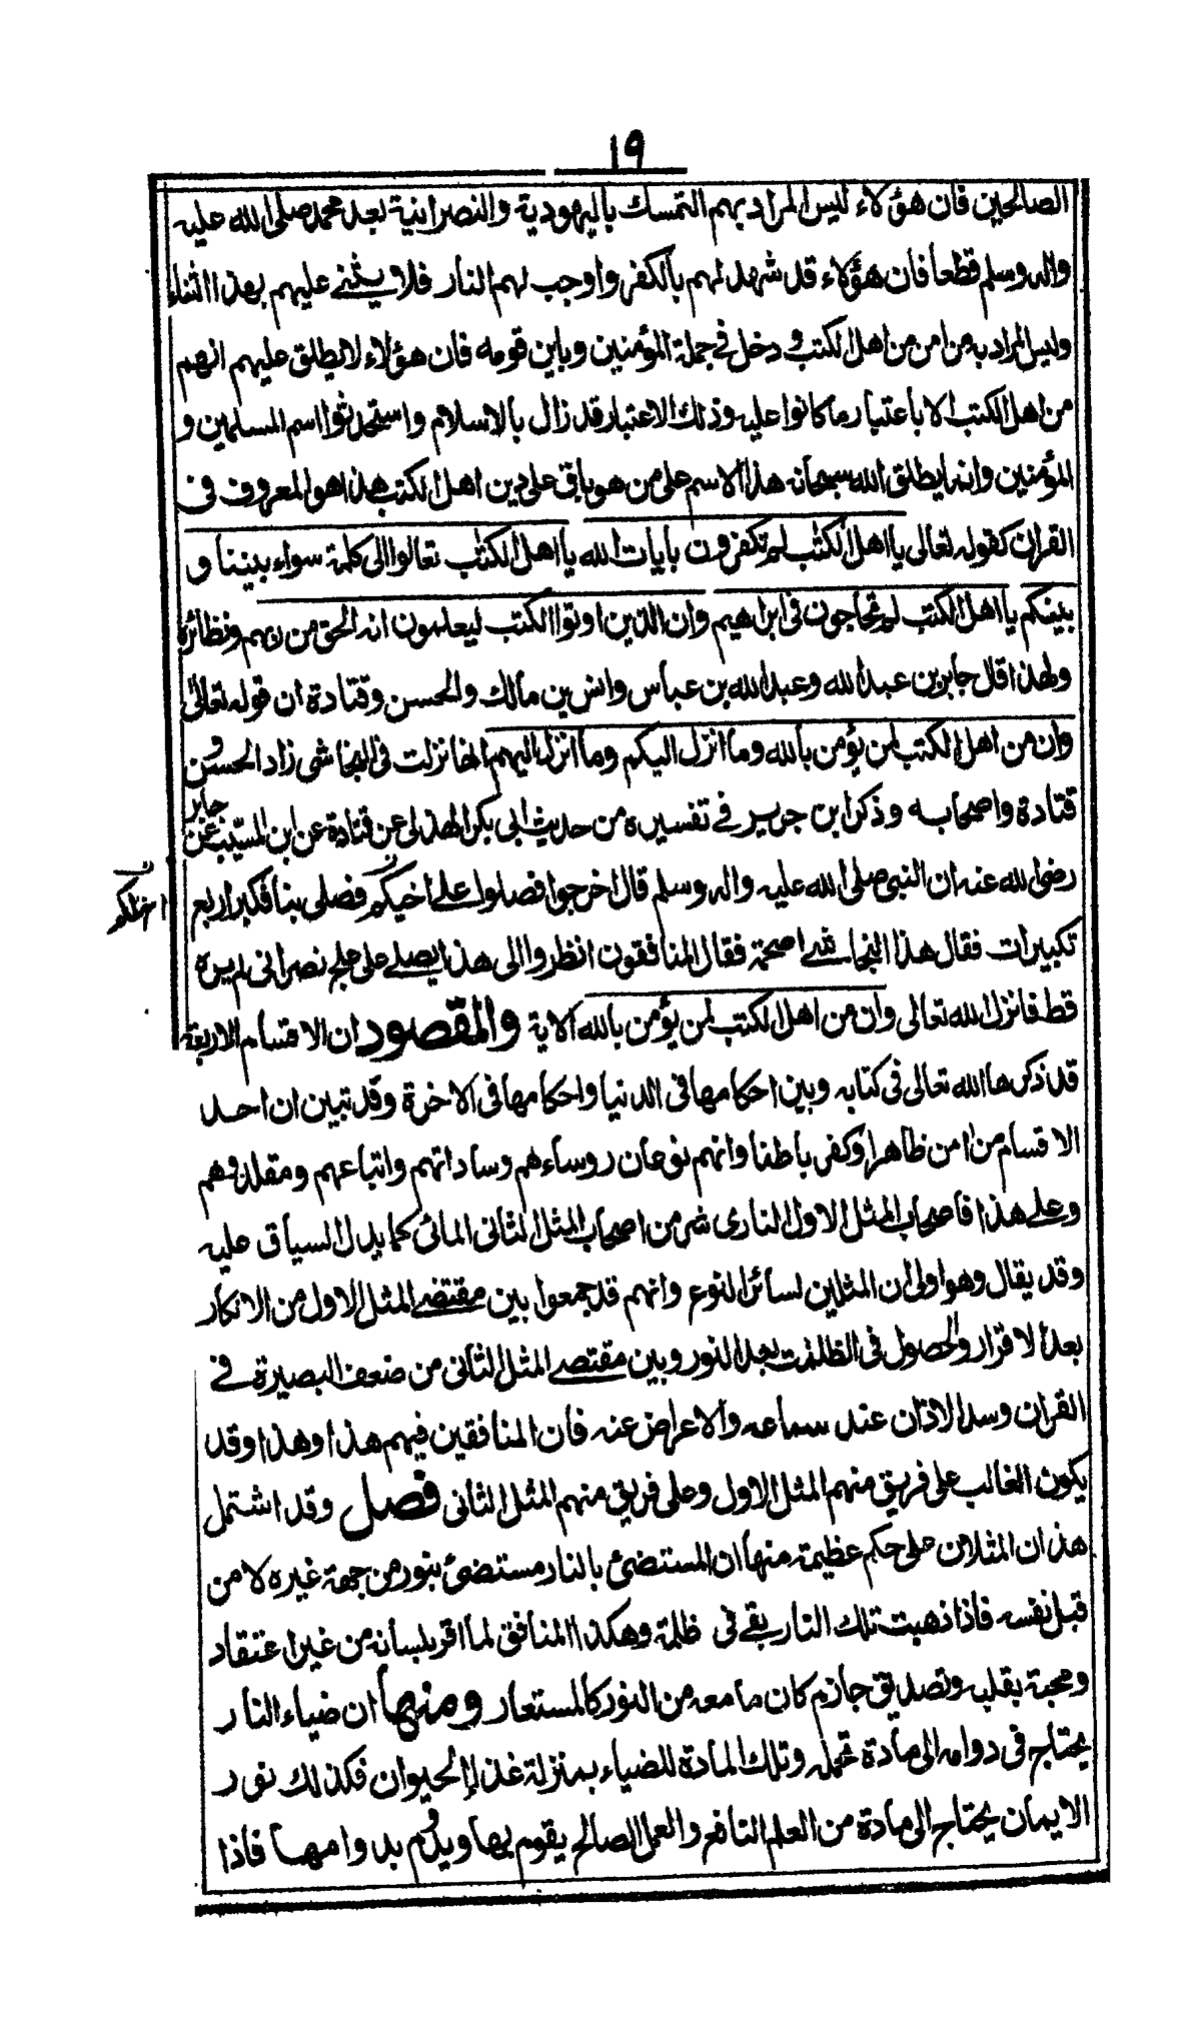 ١٩
الصالحين فان هؤلاء ليس المراد بهم التمسك باليهودية والنصرانية بعد محمد صلى الله عليه
واله وسلم قطعا فان هؤلاء قد شهد لهم بالكفر واوجب لهم النار فلا يثنے عليهم بهذا الثناء
وليس المراد به من امن من اهل الكتب و دخل في جملة المؤمنين وباين قومه فان هؤلاء لا يطلق عليهم انهم
من اهل الكتب الا باعتبار ما كانوا عليه وذلك الاعتبار قد زال بالاسلام واستحدثوا اسم المسلمين و
المؤمنين وانما يطلق الله سبحانه هذا الاسم على من هو باق على دين اهل الكتب هذا هو المعروف في
القران كقوله تعالى يا اهل الكتب لم تكفرون بايات الله يا اهل الكتب تعالوا الى كلمة سواء بيننا و
بينكم يا اهل الكتب لم تحاجون في ابراهيم وان الذين اوتوا الكتب ليعلمون انه الحق من ربهم ونظائره
ولهذا قال جابر بن عبد الله وعبد الله بن عباس وانس بن مالك والحسن وقتادة ان قوله تعالى
وان من اهل الكتب لمن يؤمن بالله وما انزل اليكم وما انزل اليهم انها نزلت في النجاشى زاد الحسن و
قتادة واصحابه وذكر ابن جرير في تفسيره من حديث ابى بكر الهذلى عن قتادة عن ابن المسيب عن جابر
رضى الله عنه ان النبى صلى الله عليه واله وسلم قال اخرجوا فصلوا على اخيكم فصلى بنا فكبر اربع
تكبيرات فقال هذا النجاشے اصحمة فقال المنافقون انظروا الى هذا يصلے على علج نصرانى لم يره
قط فانزل الله تعالى وان من اهل الكتب لمن يؤمن بالله الاية والمقصود ان الاقسام الاربعة
قد ذكرها الله تعالى فى كتابه وبين احكامها فى الدنيا واحكامها فى الاخرة وقد تبين ان احد
الاقسام من امن ظاهرا وكفر باطنا وانهم نوعان روساءهم وساداتهم واتباعهم ومقلدوهم
وعلے هذا فاصحاب المثل الاول النارى شر من اصحاب المثل الثانى المائى كما يدل السياق عليه
وقد يقال وهو اولى ان المثلين لسائر النوع وانهم قد جمعوا بين مقتضے المثل الاول من الانكار
بعد الاقرار والحصول فى الظلمات بعد النور وبين مقتضے المثل الثانى من ضعف البصيرة فے
القران وسد الاذان عند سماعه والاعراض عنه فان المنافقين فيهم هذا وهذا وقد
يكون الغالب على فريق منهم المثل الاول وعلى فريق منهم المثل الثانى فصل وقد اشتمل
هذان المثلان على حكم عظيمة منها ان المستضئ بالنار مستضئ بنور من جهة غيره لا من
قبل نفسه فاذا ذهبت تلك النار بقے فى ظلمة وهكذا المنافق لما اقر بلسانه من غير اعتقاد
ومحبة بقلبه وتصديق جازم كان ما معه من النور كالمستعار ومنها ان ضياء النار
يحتاج فى دوامه الى مادة تحمله وتلك المادة للضياء بمنزلة غذاء الحيوان فكذلك نور
الايمان يحتاج الى مادة من العلم النافع والعمل الصالح يقوم بها ويدوم بدوامها فاذا